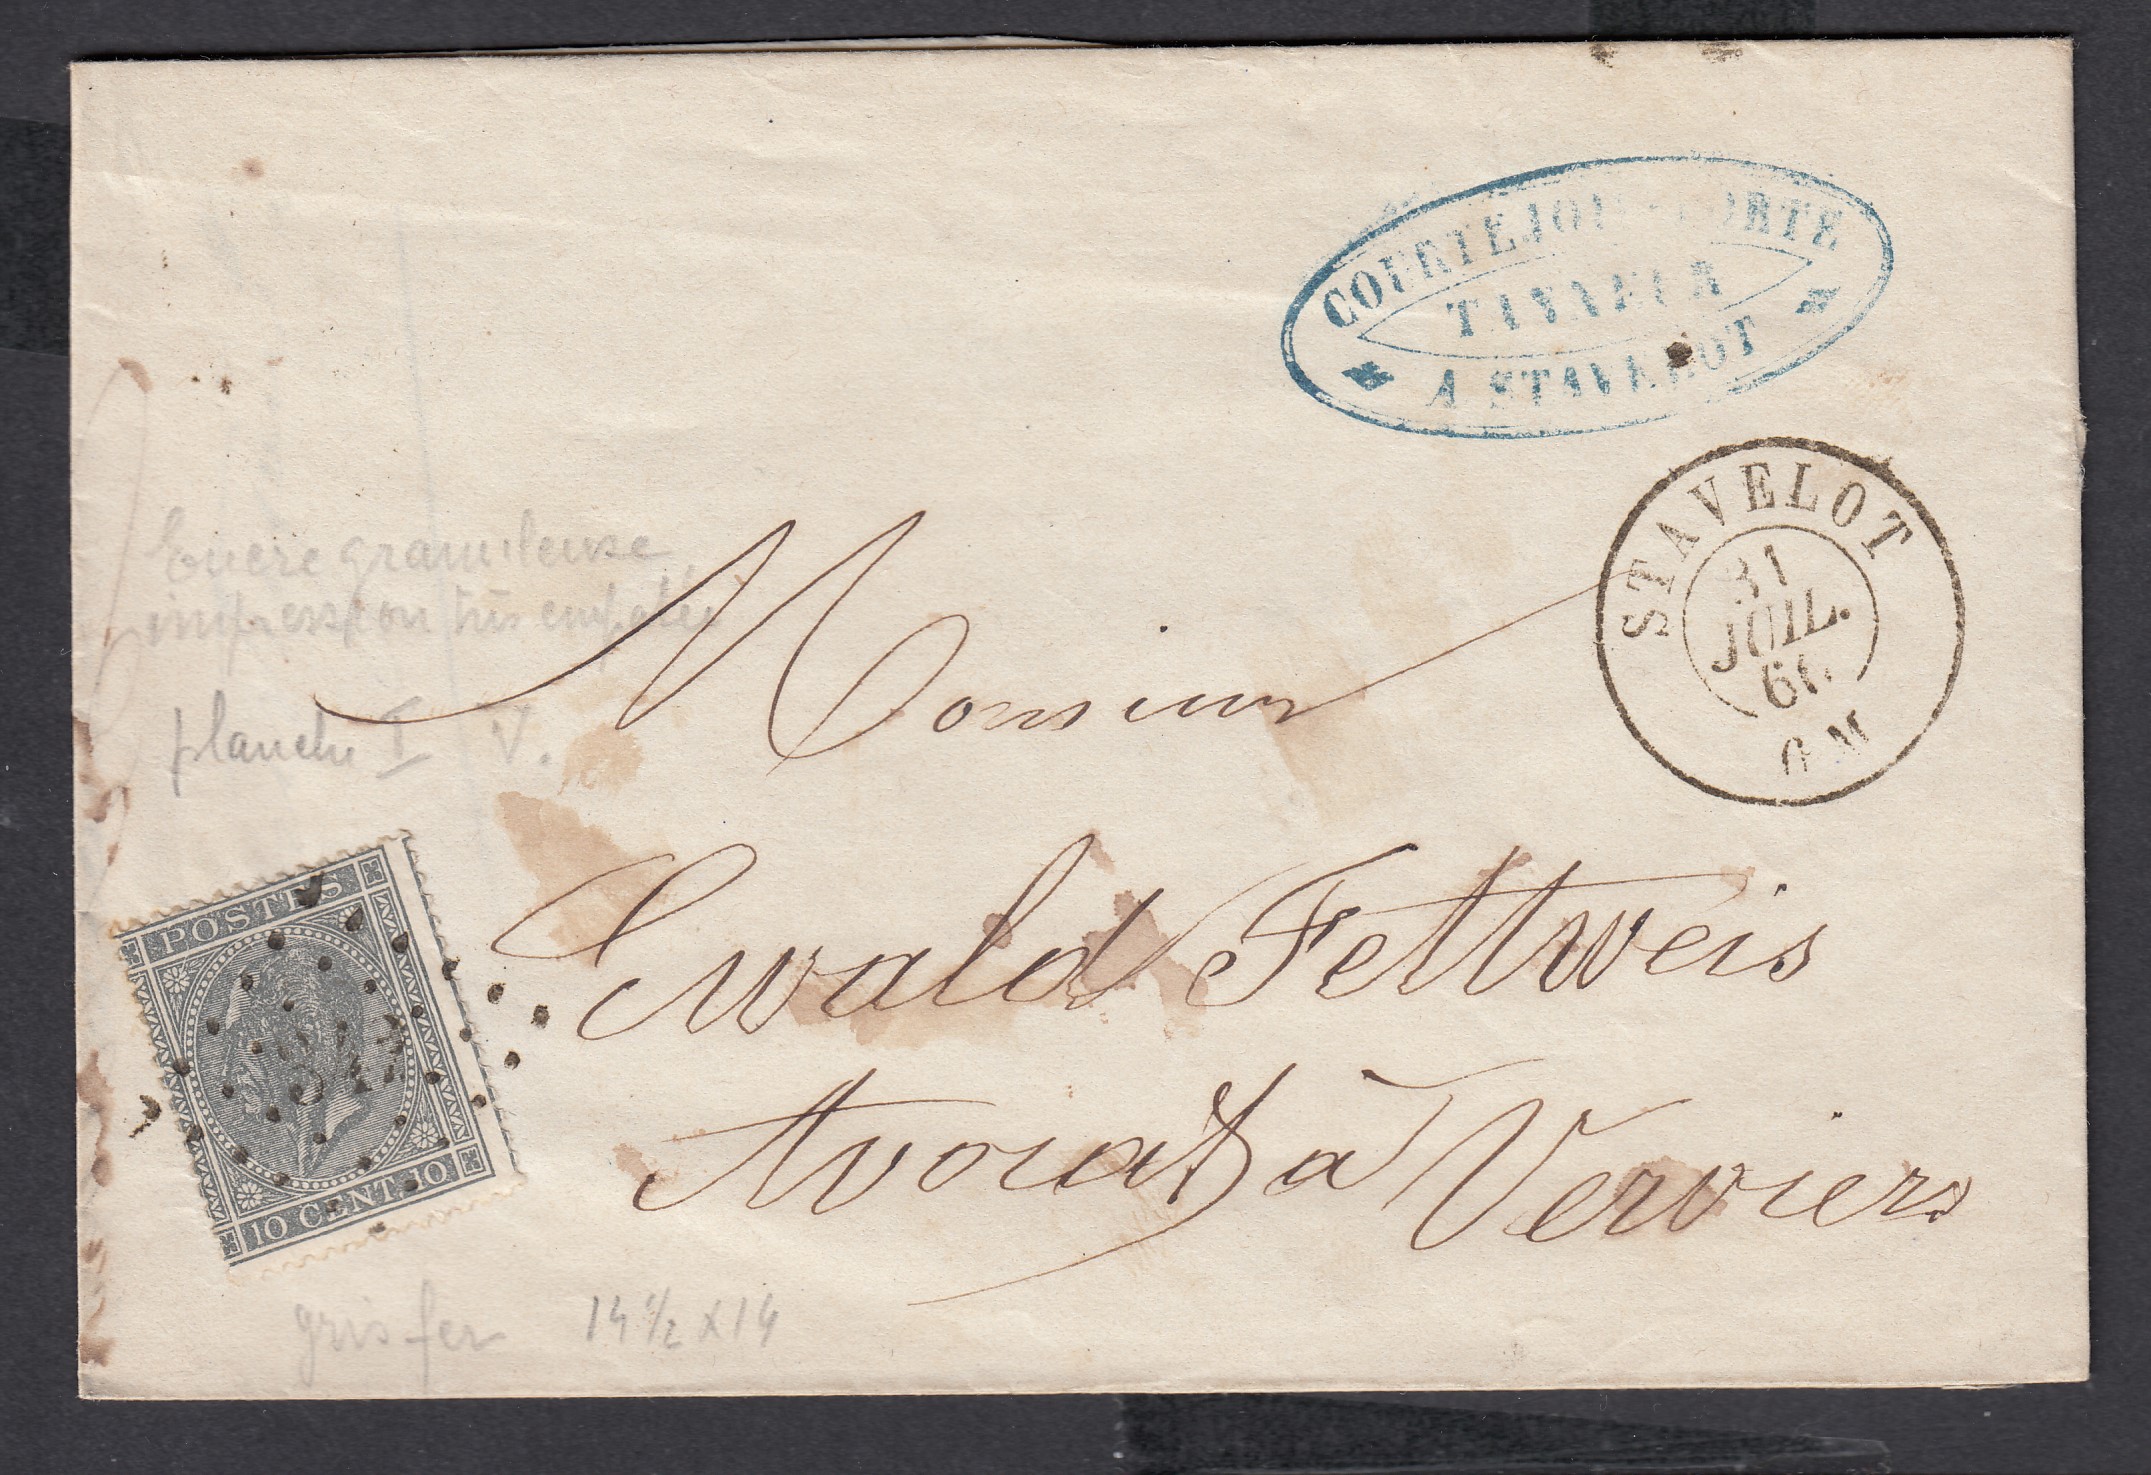 TANNEUR
A STAVELOT
STAVELOT
31
JUIL.
6 M
Encre granuleuse
impression très empatée
planche I V.
Monsieur
Ewald Fettweis
Avocat à Verviers
POSTES
10 CENT. 10
gris fer 14 1/2 x 14